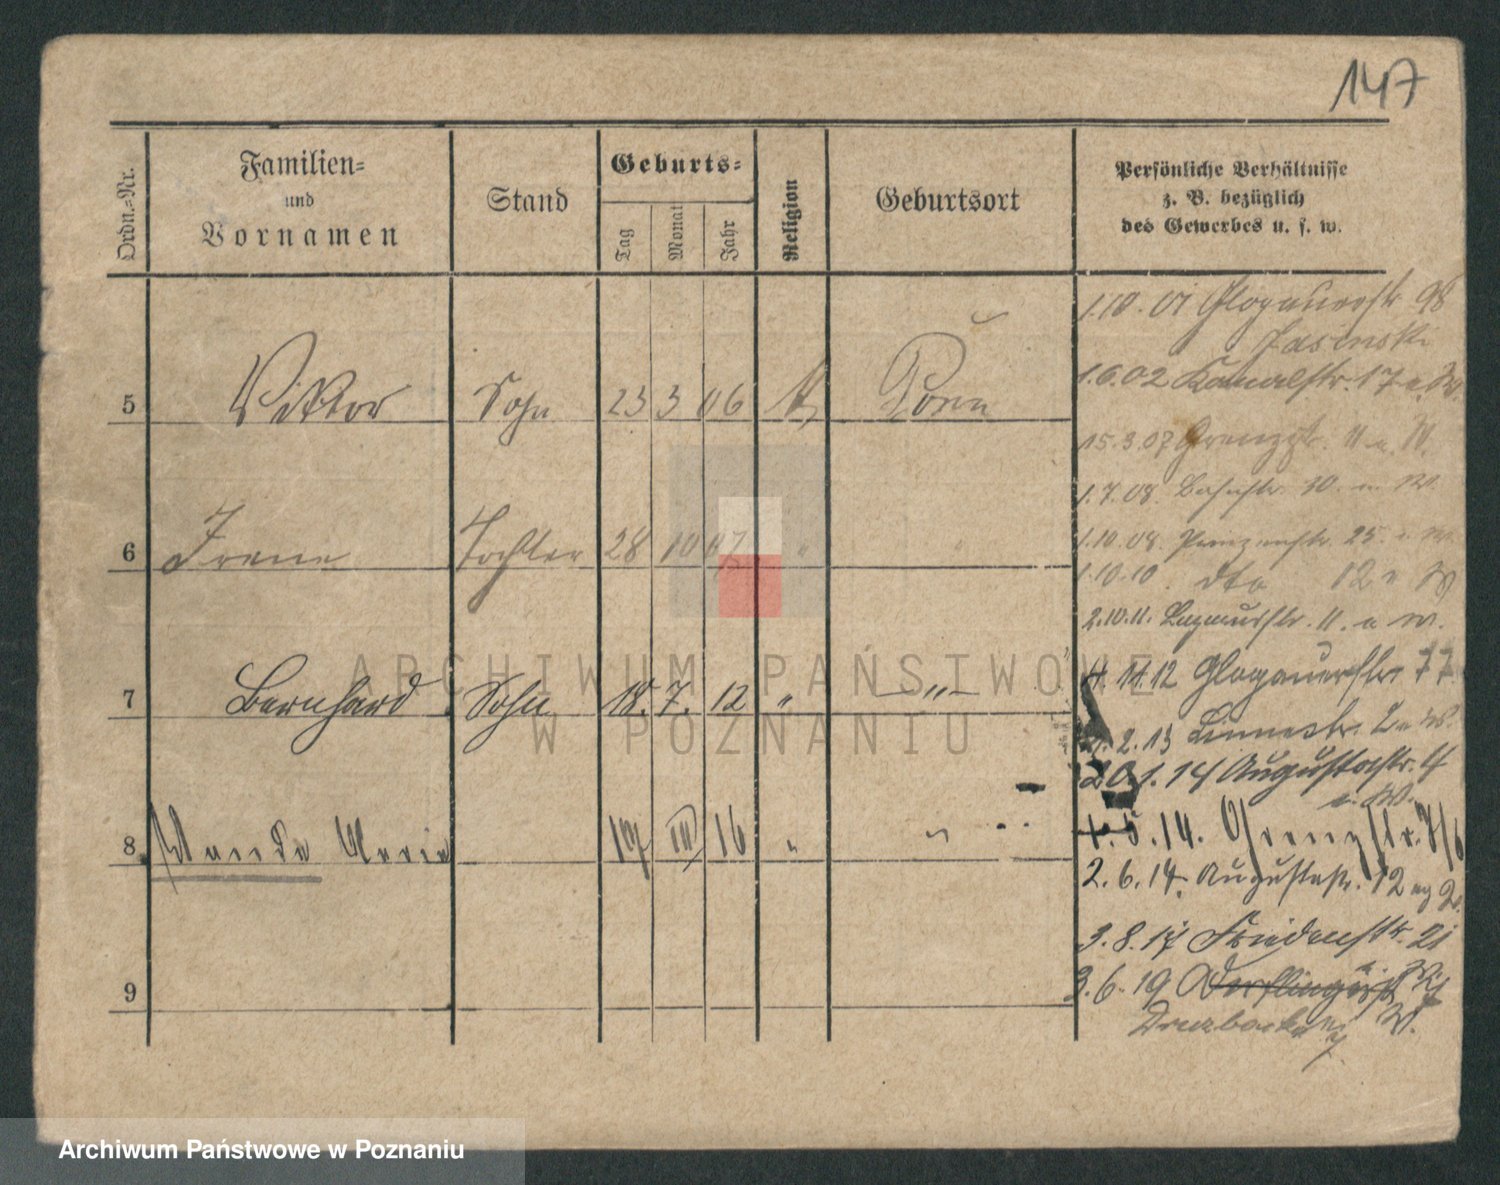 147
Ordn.-Nr.
Familien-
und
Vornamen
Stand
Geburts-
Tag
Monat
Jahr
Religion
Geburtsort
Persönliche Verhältnisse
z. B. bezüglich
des Gewerbes u. s. w.
5 Viktor Sohn 23 3 06 K Posen
6 Irene Tochter 28 10 07 " "
7 Bernhard Sohn 18. 7. 12 " — " —
8 Wanda Maria 17 III 16 " "
9
1.10.01 Glogauerstr 98
Jasinski
1.6.02 Kanalstr. 17 a. W.
15.3.07 Grenzstr. 11 a. W.
1.7.08. Bahnstr. 30. a. W.
1.10.08. 25. a. W.
1.10.10. dto 12 a W
2.10.11. Lazarusstr. 11. a W.
4.11.12 Glogauerstr 77
2.13 Linnestr. 2 a W.
20.1.14 Augustastr. 4
a. W.
1.5.14. Grenzstr. 7/6
2.6.14. Augustastr. 12
3.8.17 Friedenstr. 21
3.6.19 Derflingerstr
W.
ARCHIWUM PAŃSTWOWE
W POZNANIU
Archiwum Państwowe w Poznaniu